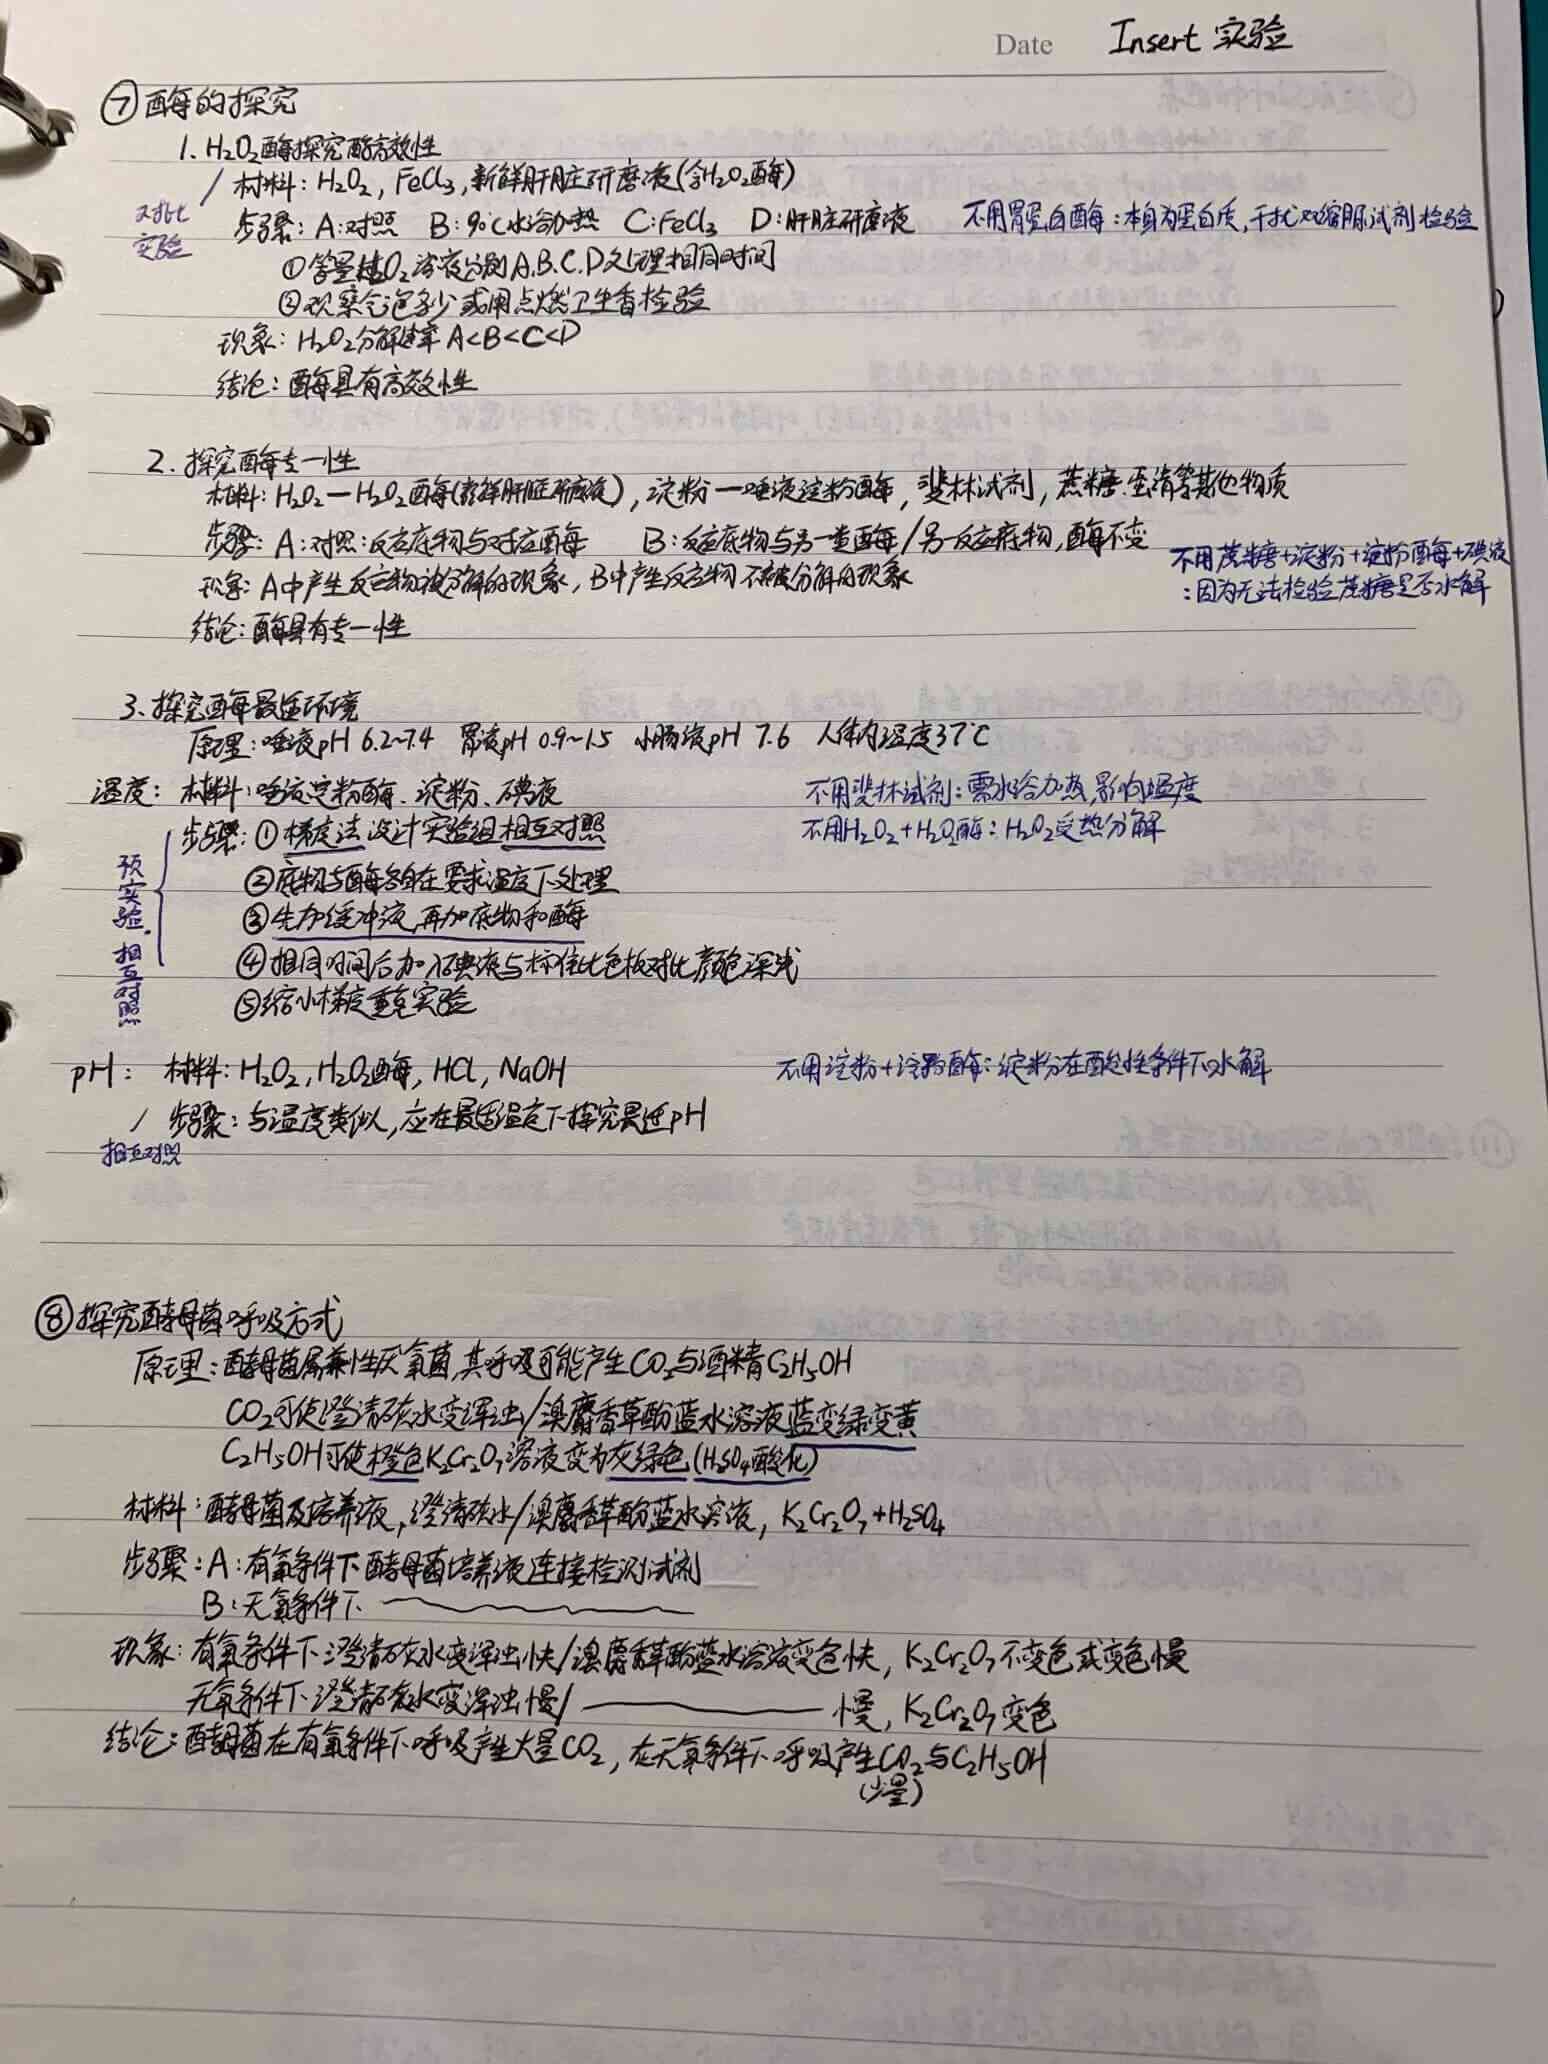 Date Insert 实验
⑦酶的探究
1. H₂O₂酶探究酶高效性
材料: H₂O₂, FeCl₃, 新鲜肝脏研磨液(含H₂O₂酶)
对比实验
步骤: A:对照 B: 90℃水浴加热 C:FeCl₃ D:肝脏研磨液 不用胃蛋白酶:本身为蛋白质,干扰双缩脲试剂检验
①等量H₂O₂溶液分别A.B.C.D处理相同时间
②观察气泡多少或用点燃卫生香检验
现象: H₂O₂分解速率 A<B<C<D
结论: 酶具有高效性
2. 探究酶专一性
材料: H₂O₂—H₂O₂酶(新鲜肝脏研磨液), 淀粉—唾液淀粉酶, 斐林试剂, 蔗糖.蛋清等其他物质
步骤: A:对照:反应底物与对应酶 B:反应底物与另一类酶/另一反应底物,酶不变
不用蔗糖+淀粉+淀粉酶+碘液
现象: A中产生反应物被分解的现象, B中产生反应物不被分解的现象
:因为无法检验蔗糖是否水解
结论: 酶具有专一性
3、探究酶最适环境
原理: 唾液pH 6.2~7.4 胃液pH 0.9~1.5 小肠液pH 7.6 人体内温度37℃
温度: 材料: 唾液淀粉酶、淀粉、碘液 不用斐林试剂:需水浴加热,影响温度
步骤: ①梯度法设计实验组相互对照 不用H₂O₂+H₂O₂酶: H₂O₂受热分解
预实验.相互对照
②底物与酶各自在要求温度下处理
③先加缓冲液,再加底物和酶
④相同时间后加入碘液与标准比色板对比颜色深浅
⑤缩小梯度重复实验
pH: 材料: H₂O₂, H₂O₂酶, HCl, NaOH 不用淀粉+淀粉酶: 淀粉在酸性条件下水解
步骤: 与温度类似, 应在最适温度下探究最适pH
相互对照
⑧探究酵母菌呼吸方式
原理: 酵母菌属兼性厌氧菌,其呼吸可能产生CO₂与酒精C₂H₅OH
CO₂可使澄清石灰水变浑浊/溴麝香草酚蓝水溶液蓝变绿变黄
C₂H₅OH可使橙色K₂Cr₂O₇溶液变为灰绿色(H₂SO₄酸化)
材料: 酵母菌及培养液, 澄清石灰水/溴麝香草酚蓝水溶液, K₂Cr₂O₇+H₂SO₄
步骤: A:有氧条件下酵母菌培养液连接检测试剂
B:无氧条件下
现象: 有氧条件下澄清石灰水变浑浊快/溴麝香草酚蓝水溶液变色快, K₂Cr₂O₇不变色或变色慢
无氧条件下澄清石灰水变浑浊慢/ —— 慢, K₂Cr₂O₇变色
结论: 酵母菌在有氧条件下呼吸产生大量CO₂, 在无氧条件下呼吸产生CO₂与C₂H₅OH
(少量)